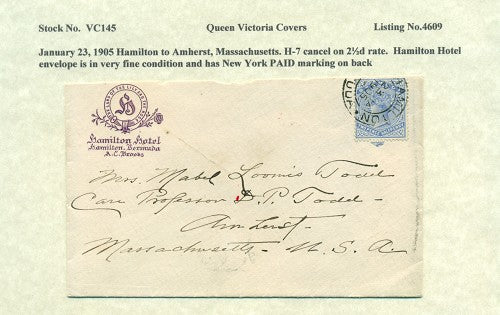 Stock No. VC145 Queen Victoria Covers Listing No.4609
January 23, 1905 Hamilton to Amherst, Massachusetts. H-7 cancel on 2½d rate. Hamilton Hotel
envelope is in very fine condition and has New York PAID marking on back
HAMILTON
Hamilton Hotel
Hamilton, Bermuda
A.C. Brooks
Mrs. Mabel Loomis Todd
Care Professor D. P. Todd -
Amherst -
Massachusetts - U. S. A.